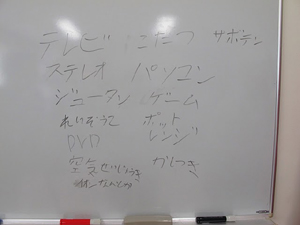 テレビ こたつ サボテン
ステレオ パソコン
ジュータン ゲーム
れいぞうこ ポット
DVD レンジ
空気せいじょうき かしつき